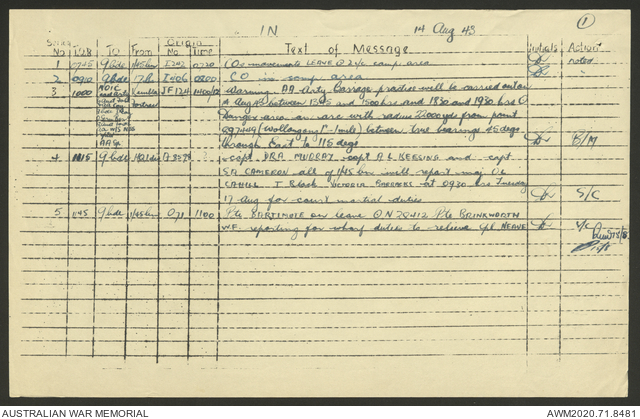 1
IN 14 Aug 43
Serial No TOR TO From Origin No Time Text of Message Initials Action
1 0745 9 Bde I242 0720 COs movements LEAVE 2 i/c camp area noted
2 0910 9 bde I406 0800 CO in camp area
3 1000 Kembla JF124 Warning. AA Arty Barrage practice will be carried out on
14 Aug 43 between 1345 and 1500 hrs and 1830 and 1930 hrs
Danger area an arc with radius 22000 yds from point
297449 (Wollongong 1" - 1 mile) between true bearings 45 degs
through East to 115 degs B/M
4 1115 9 bde Capt DRA MURRAY capt A L KEESING and capt
S A CAMERON all of 1/45 bn will report maj OL
CAHILL I Block VICTORIA BARRACKS at 0930 hrs Tuesday
17 Aug for court martial duties S/C
5 1145 9 bde 1/45 bn O71 1100 Pte BARTIMOLE on leave N 29412 Pte BRINKWORTH
W.F. reporting for wharf duties to relieve Cpl NEAVE S/C
AUSTRALIAN WAR MEMORIAL AWM2020.71.8481